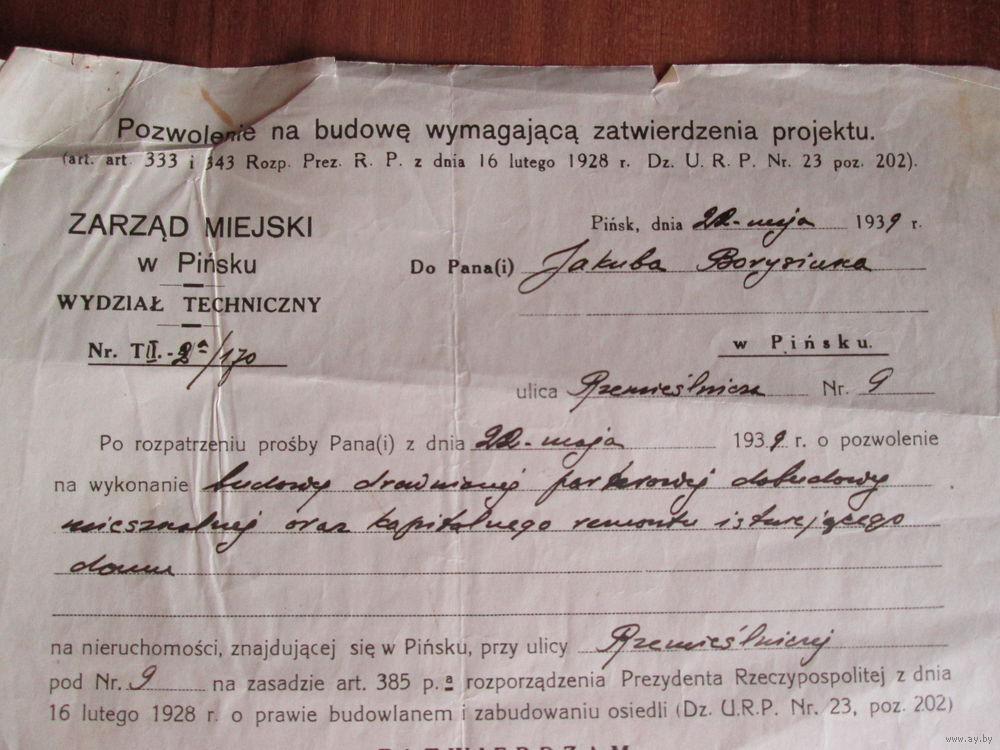 Pozwolenie na budowę wymagającą zatwierdzenia projektu.
(art. art. 333 i 343 Rozp. Prez. R. P. z dnia 16 lutego 1928 r. Dz. U. R. P. Nr. 23 poz. 202).
ZARZĄD MIEJSKI
w Pińsku
WYDZIAŁ TECHNICZNY
Nr. TII.-2a/170
Pińsk, dnia 22-maja 1939 r.
Do Pana(i) Jakuba Borysiuka
w Pińsku.
ulica Rzemieślnicza Nr. 9
Po rozpatrzeniu prośby Pana(i) z dnia 22-maja 1939 r. o pozwolenie
na wykonanie budowy drewnianej parterowej dobudowy
mieszkalnej oraz kapitalnego remontu istniejącego
domu
na nieruchomości, znajdującej się w Pińsku, przy ulicy Rzemieślniczej
pod Nr. 9 na zasadzie art. 385 p. a rozporządzenia Prezydenta Rzeczypospolitej z dnia
16 lutego 1928 r. o prawie budowlanem i zabudowaniu osiedli (Dz. U.R.P. Nr. 23, poz. 202)
www.ay.by